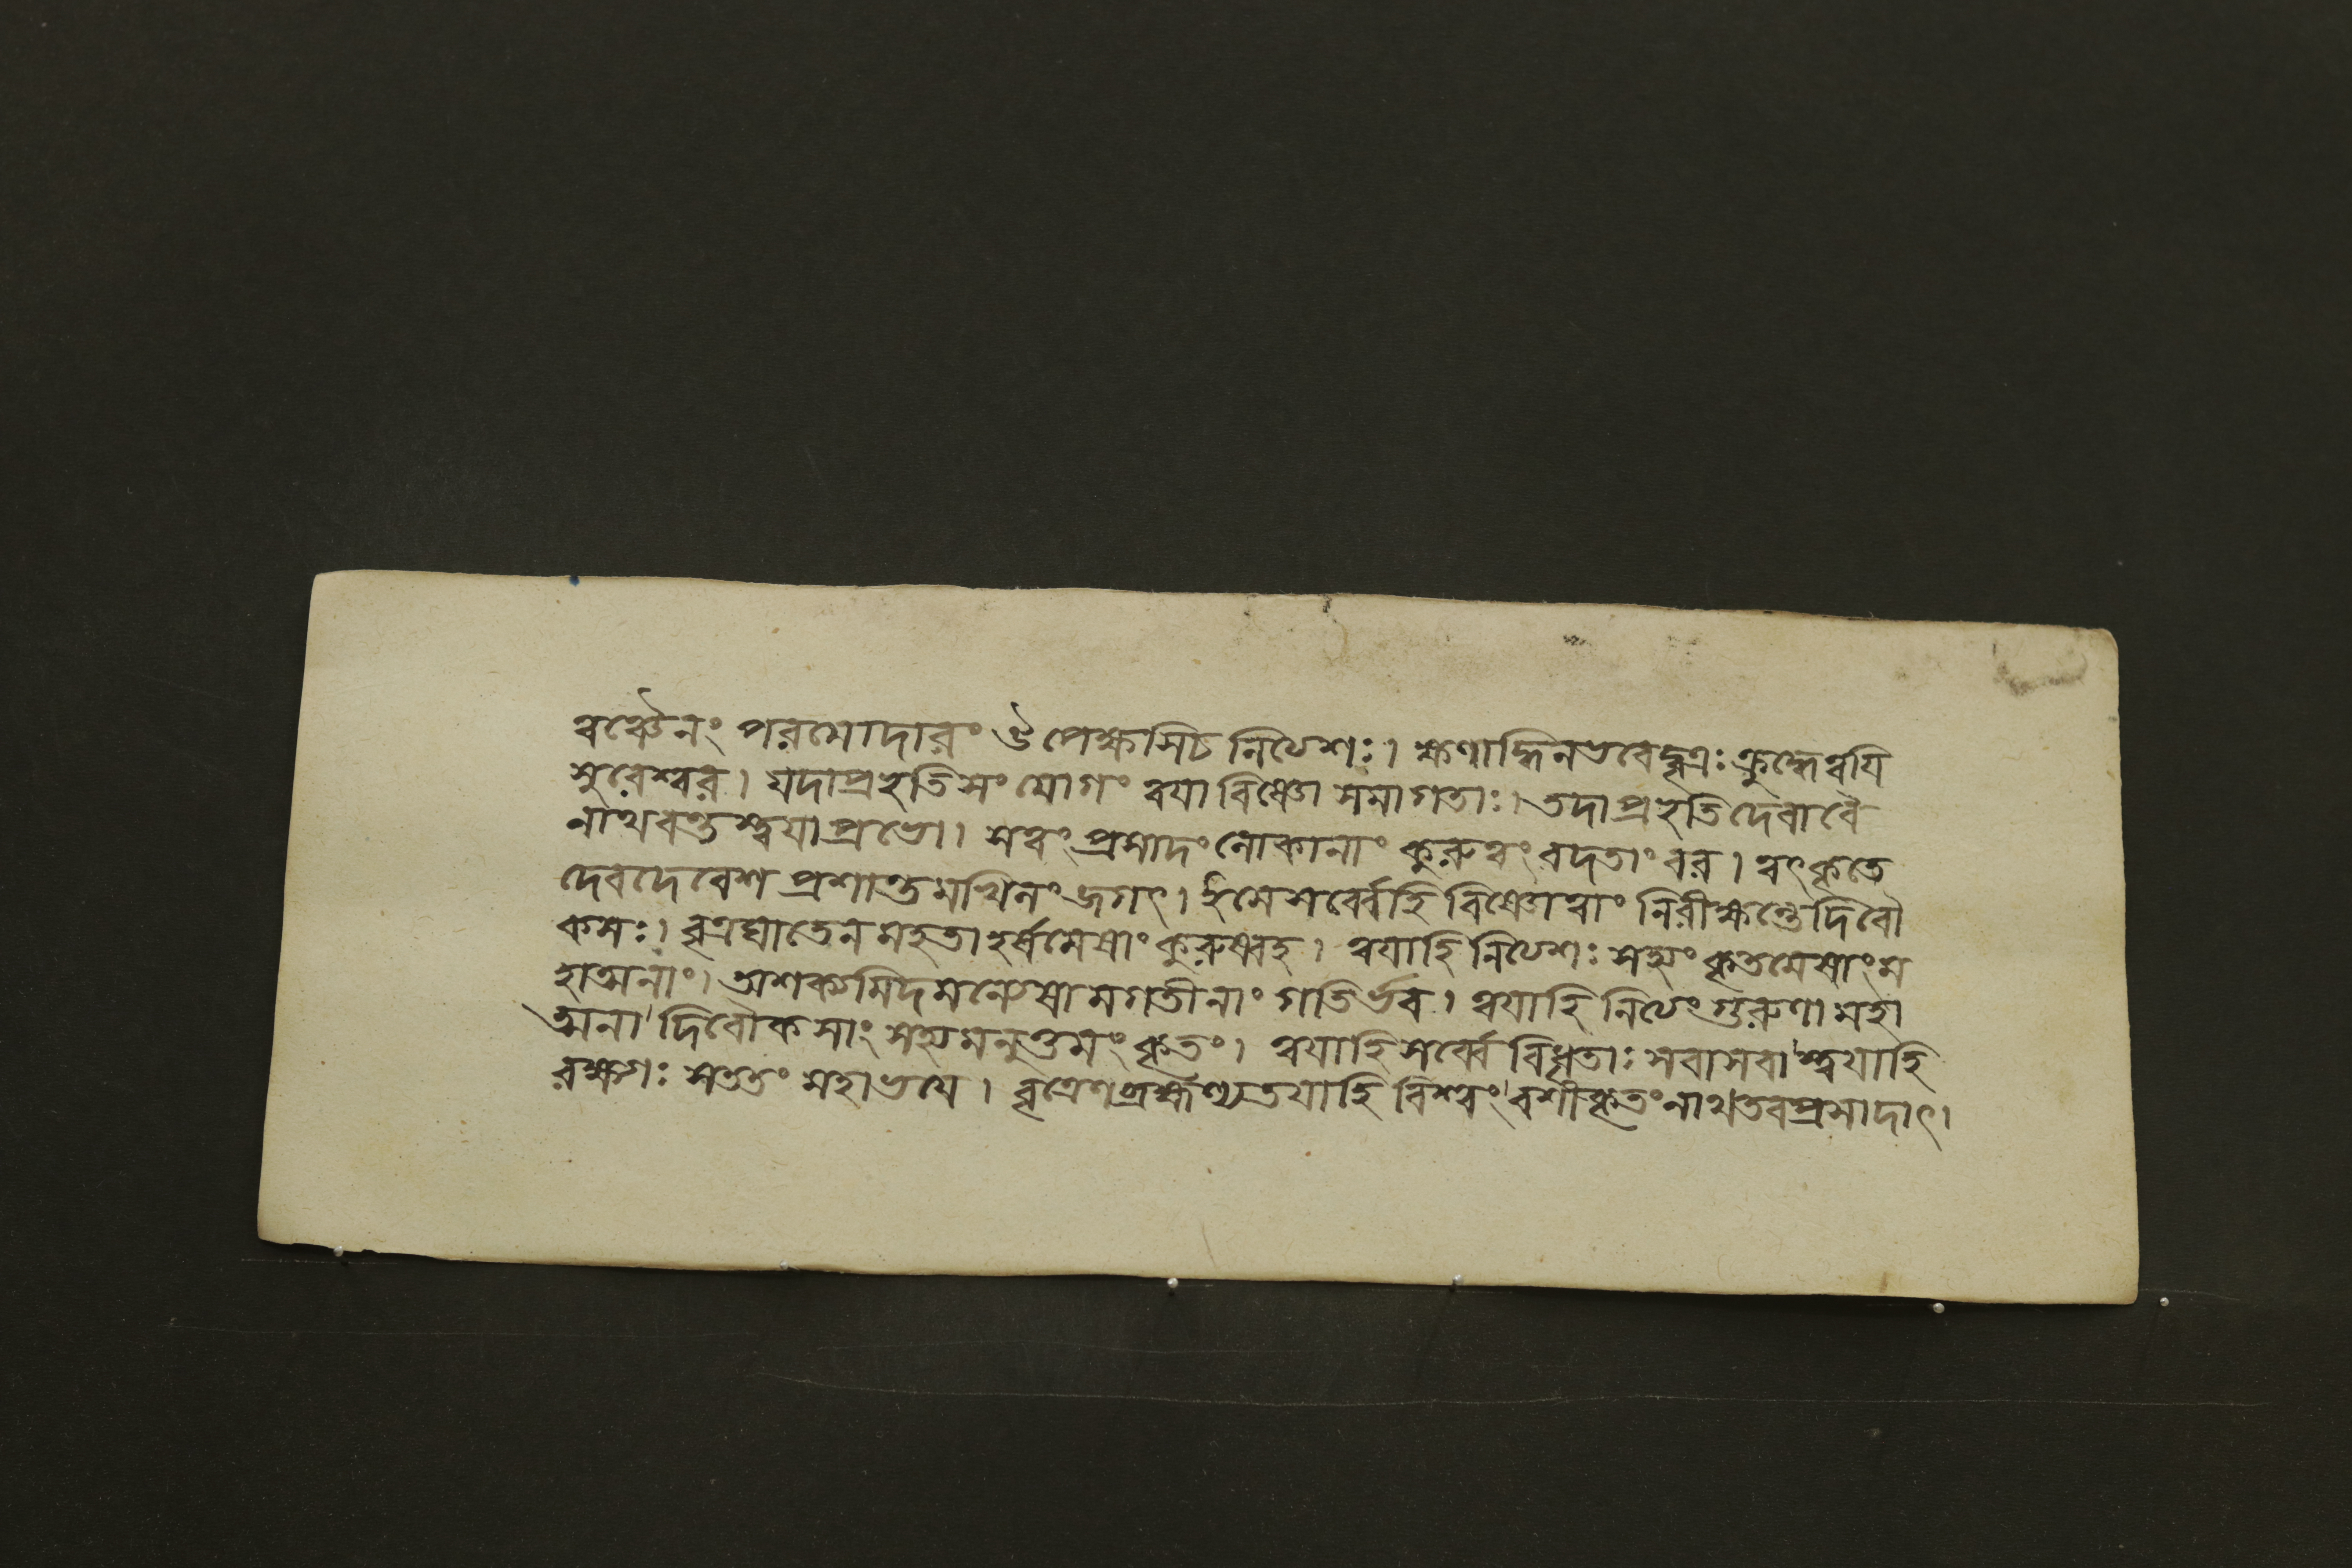 ত্বঞ্চৈনং পরমোদারং ঔপেক্ষসিচ নিত্যশঃ। ক্ষণাদ্ধিনভবেদ্বৃত্রঃ ক্রুদ্ধেত্বয়ি
সুরেশ্বর। যদাপ্রহৃতিসংযোগং ত্বয়া বিষ্ণো সমাগতাঃ। তদাপ্রহৃতিদেবাবৈ
নাথবন্তস্ত্বয়া প্রভো। সত্বং প্রসাদং লোকানাং কুরুত্বং বদতাং বর। ত্বৎকৃতে
দেবদেবেশ প্রশান্তমখিলং জগৎ। ইমে সর্ব্বেহি বিষ্ণোত্বাং নিরীক্ষন্তে দিবৌ
কসঃ। বৃত্রঘাতেন মহতা হর্ষমেষাং কুরুষ্বহ। ত্বয়াহি নিত্যশঃ সহ্যং কৃতমেষাং ম
হাত্মনাং। অশক্যমিদমন্যেষামগতীনাং গতির্ভব। ত্বয়াহি নিত্যং গুরুণা মহা
ত্মনা দিবৌকসাং সহ্যমনুত্তমং কৃতং। ত্বয়াহি সর্ব্বে বিধৃতাঃ সবাসবাস্ত্বয়াহি
রক্ষগঃ সততং মহাভয়ে। বৃত্রেণ তয়াহি বিশ্বং বশীকৃতং নাথ তব প্রসাদাৎ।